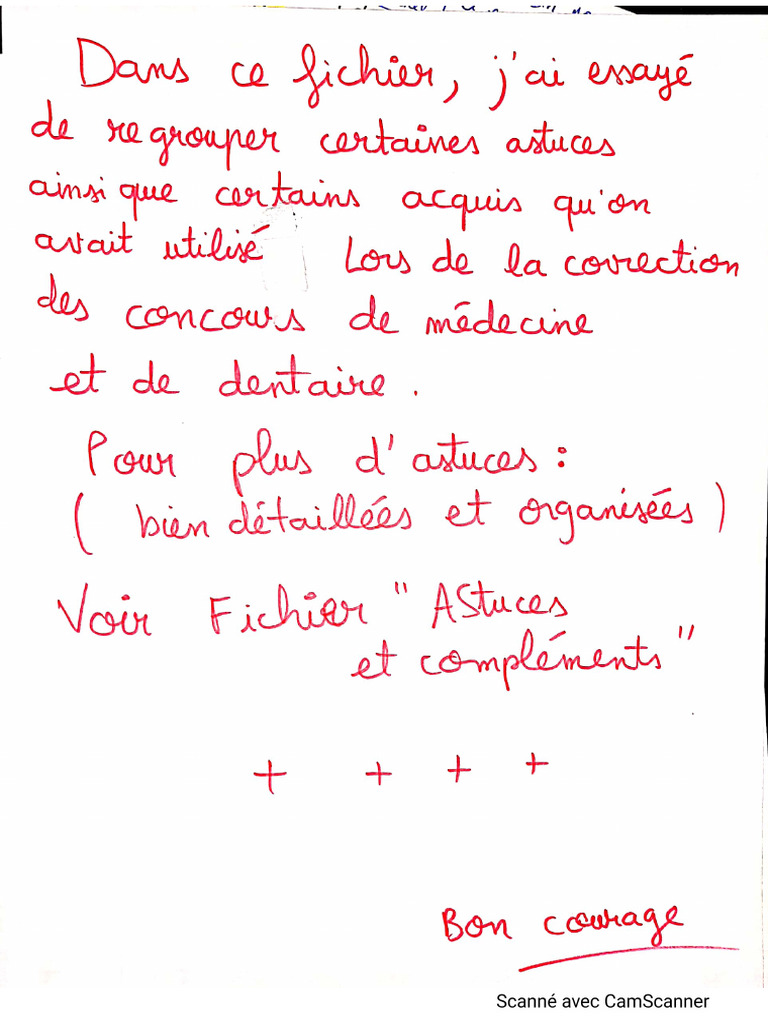 Dans ce fichier, j'ai essayé
de regrouper certaines astuces
ainsi que certains acquis qu'on
avait utilisé Lors de la correction
des concours de médecine
et de dentaire.
Pour plus d'astuces :
( bien détaillées et organisées )
Voir Fichier " AStuces
et compléments "
+ + + +
Bon courage
Scanné avec CamScanner